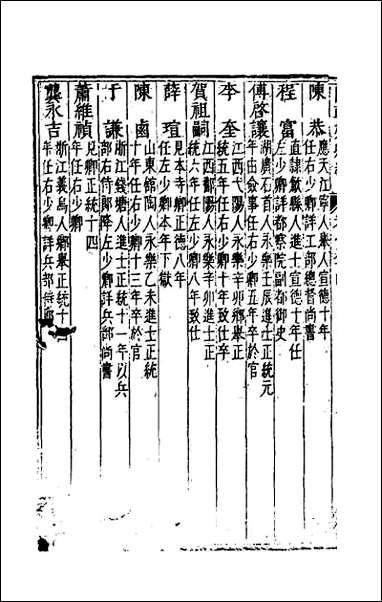 陳恭 應天江寧人舉人宣德十年
任右少卿詳工部總督尚書
程富 直隸歙縣人進士宣德十年任
左少卿詳都察院副都御史
傅啓讓 湖廣石首人永樂壬辰進士正統元
年由僉事任右少卿五年卒於官
李奎 江西弋陽人永樂辛卯鄉舉正
統五年任右少卿十年致仕卒
賀祖嗣 江西鄱陽人永樂辛卯進士正
統六年任左少卿八年致仕
薛瑄 見本寺卿正德八年
任左少卿本年下獄
陳鹵 山東館陶人永樂乙未進士正統
十年任右少卿十三年卒於官
于謙 浙江錢塘人進士正統十一年以兵
部右侍郎降左少卿詳兵部尚書
蕭維禎 見卿正統十四
年任右少卿
龔永吉 浙江義烏人鄉舉正統十四
年任右少卿詳兵部侍郎